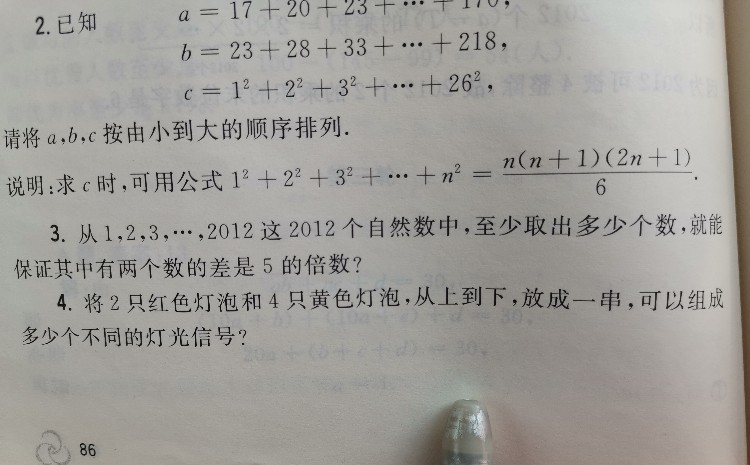 2.已知 a = 17 + 20 + 23 + ⋯ + 170,
b = 23 + 28 + 33 + ⋯ + 218,
c = 1² + 2² + 3² + ⋯ + 26²,
请将 a,b,c 按由小到大的顺序排列.
说明:求 c 时,可用公式 1² + 2² + 3² + ⋯ + n² = n(n + 1)(2n + 1)/6.
3. 从 1,2,3,⋯,2012 这 2012 个自然数中,至少取出多少个数,就能
保证其中有两个数的差是 5 的倍数?
4. 将 2 只红色灯泡和 4 只黄色灯泡,从上到下,放成一串,可以组成
多少个不同的灯光信号?
86